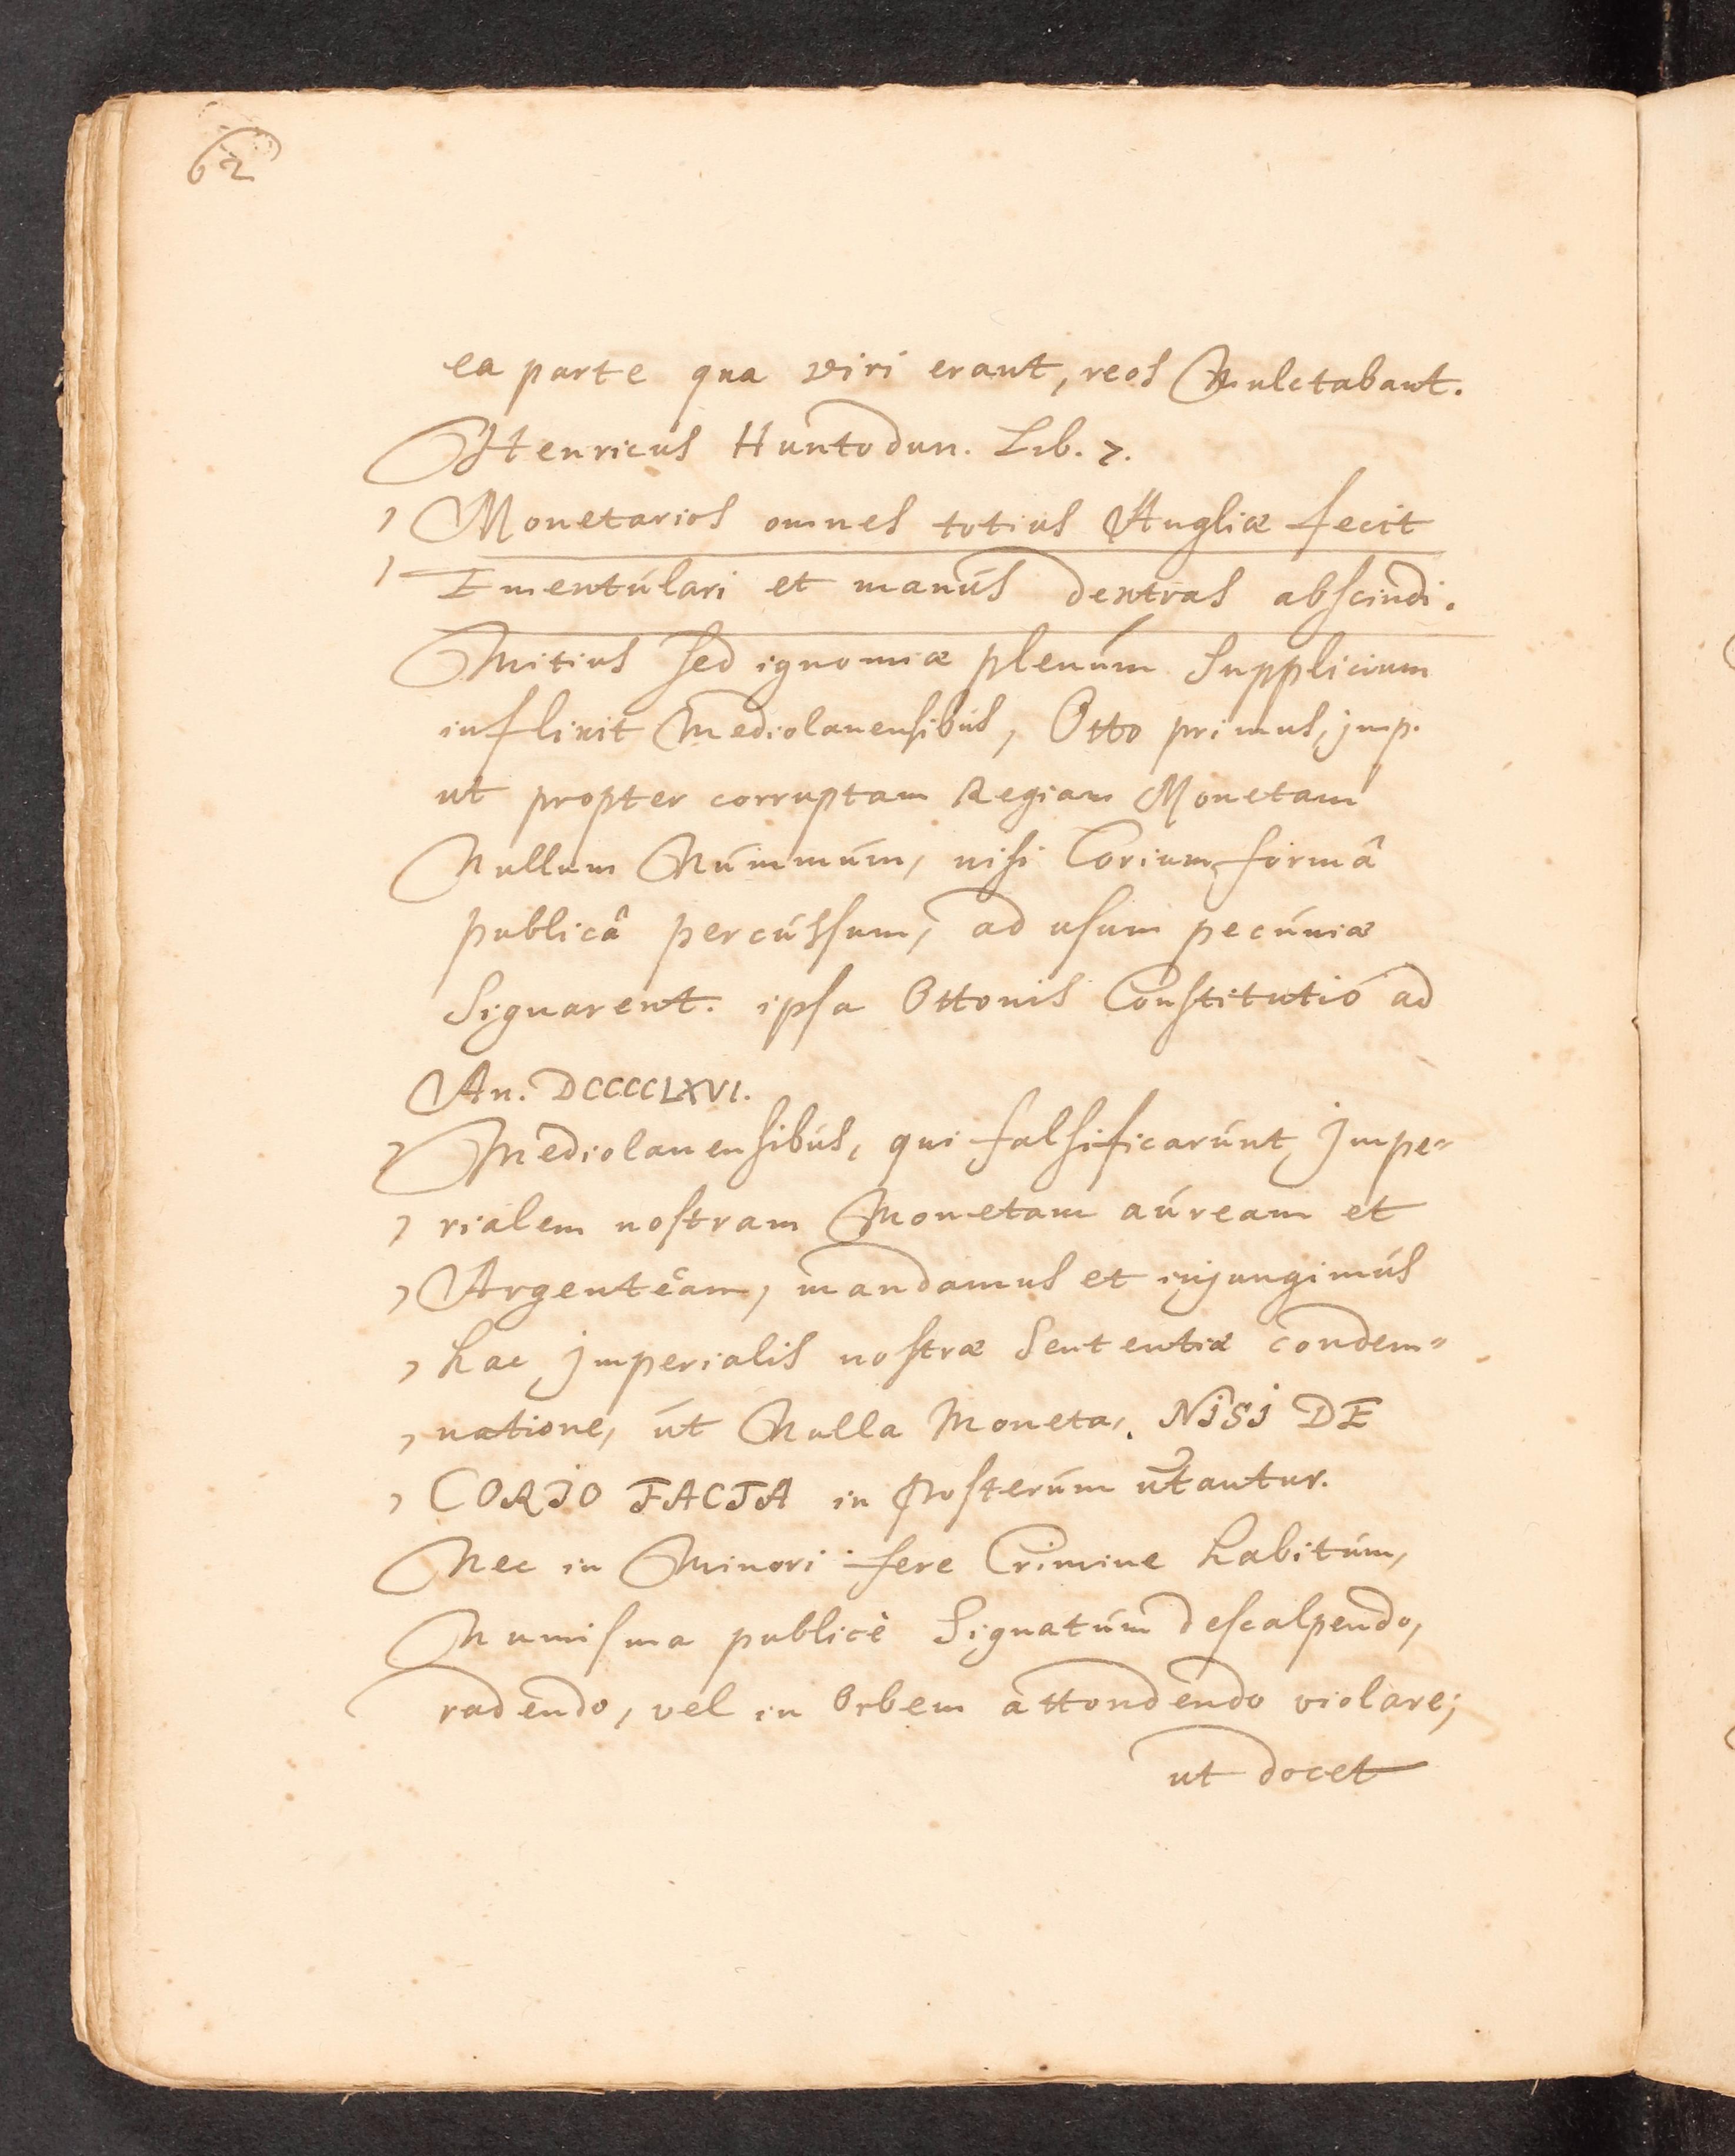 62
ea parte qua viri erant, reos Mulctabant.
Henricus Huntodun. Lib. 7.
, Monetarios omnes totius Angliæ fecit
, Ementúlari et manús dextras abscindi.
Mitius sed ignomiæ plenúm Supplicium
inflixit Mediolanensibús, Otto primus, jmp.
ut propter corruptam Regiam Monetam
Nullum Númmúm, nisi Corium formâ
publicâ percússum, ad usum pecúniæ
Signarent. ipsa Ottonis Constitutio ad
An. DCCCCLXVI.
, Mediolanensibús, qui falsificarúnt Jmpe=
, rialem nostram Monetam aúream et
, Argenteam, mandamus et injungimús
, hac jmperialis nostræ Sententiæ condem=
, natione, út Nulla Moneta, NJSJ DE
, CORJO FACTA in Posterúm utantur.
Nec in Minori fere Crimine habitúm,
Numisma publicè Signatúm descalpendo,
radendo, vel in Orbem attondendo violare;
ut docet